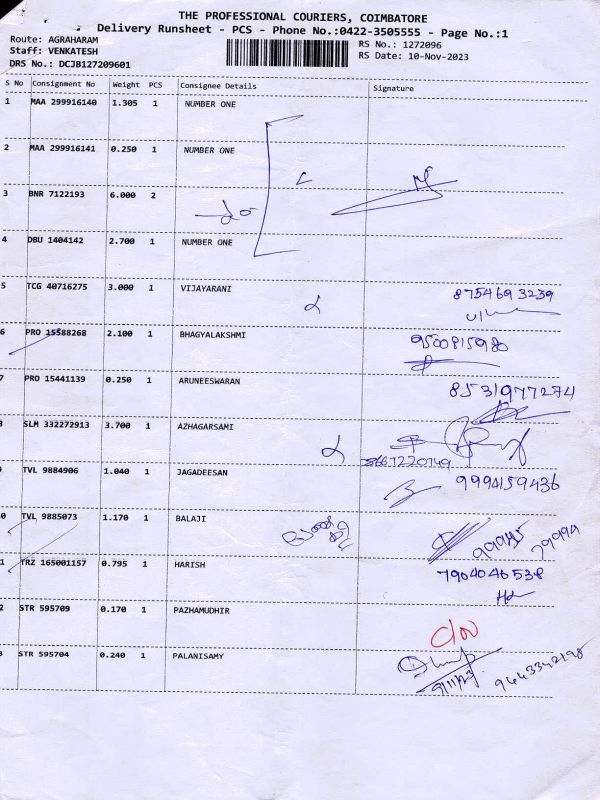 THE PROFESSIONAL COURIERS, COIMBATORE
Delivery Runsheet - PCS - Phone No.:0422-3505555 - Page No.:1
Route: AGRAHARAM RS No.: 1272096
Staff: VENKATESH RS Date: 10-Nov-2023
DRS No.: DCJB127209601
S No Consignment No Weight PCS Consignee Details Signature
1 MAA 299916140 1.305 1 NUMBER ONE
2 MAA 299916141 0.250 1 NUMBER ONE
3 BNR 7122193 6.000 2
4 DBU 1404142 2.700 1 NUMBER ONE
5 TCG 40716275 3.000 1 VIJAYARANI 8754693239
6 PRO 15588268 2.100 1 BHAGYALAKSHMI 9500815980
7 PRO 15441139 0.250 1 ARUNEESWARAN 8531977274
8 SLM 332272913 3.700 1 AZHAGARSAMI
9 TVL 9884906 1.040 1 JAGADEESAN 9994159436
0 TVL 9885073 1.170 1 BALAJI
1 TRZ 165001157 0.795 1 HARISH 7904046538
2 STR 595709 0.170 1 PAZHAMUDHIR
3 STR 595704 0.240 1 PALANISAMY 9443342198